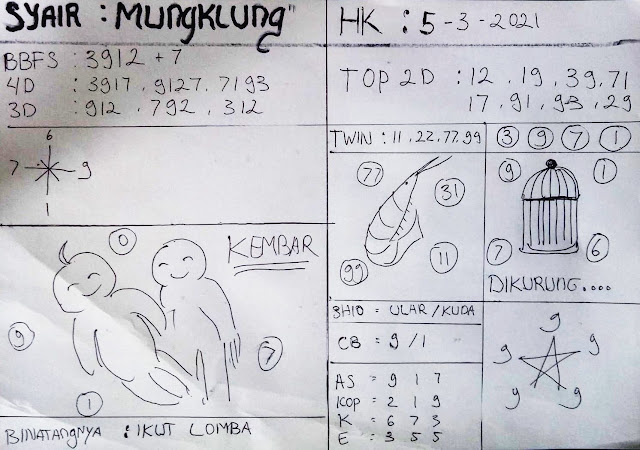 SYAIR : MUNGKLUNG"
HK : 5-3-2021
BBFS : 3912 + 7
4D : 3917 . 9127. 7193
3D : 912 . 792 . 312
TOP 2D : 12 . 19 . 39, 71
17 . 91 . 93 . 29
6
7 9
1
TWIN : 11 . 22. 77. 99
3 9 7 1
77
31
99
11
9 1
7 6
DIKURUNG....
0
KEMBAR
9
7
1
BINATANGNYA : IKUT LOMBA
SHIO = ULAR / KUDA
CB = 9 / 1
AS = 9 1 7
KOP = 2 1 9
K = 6 7 3
E = 3 5 5
9
9 9
9 9